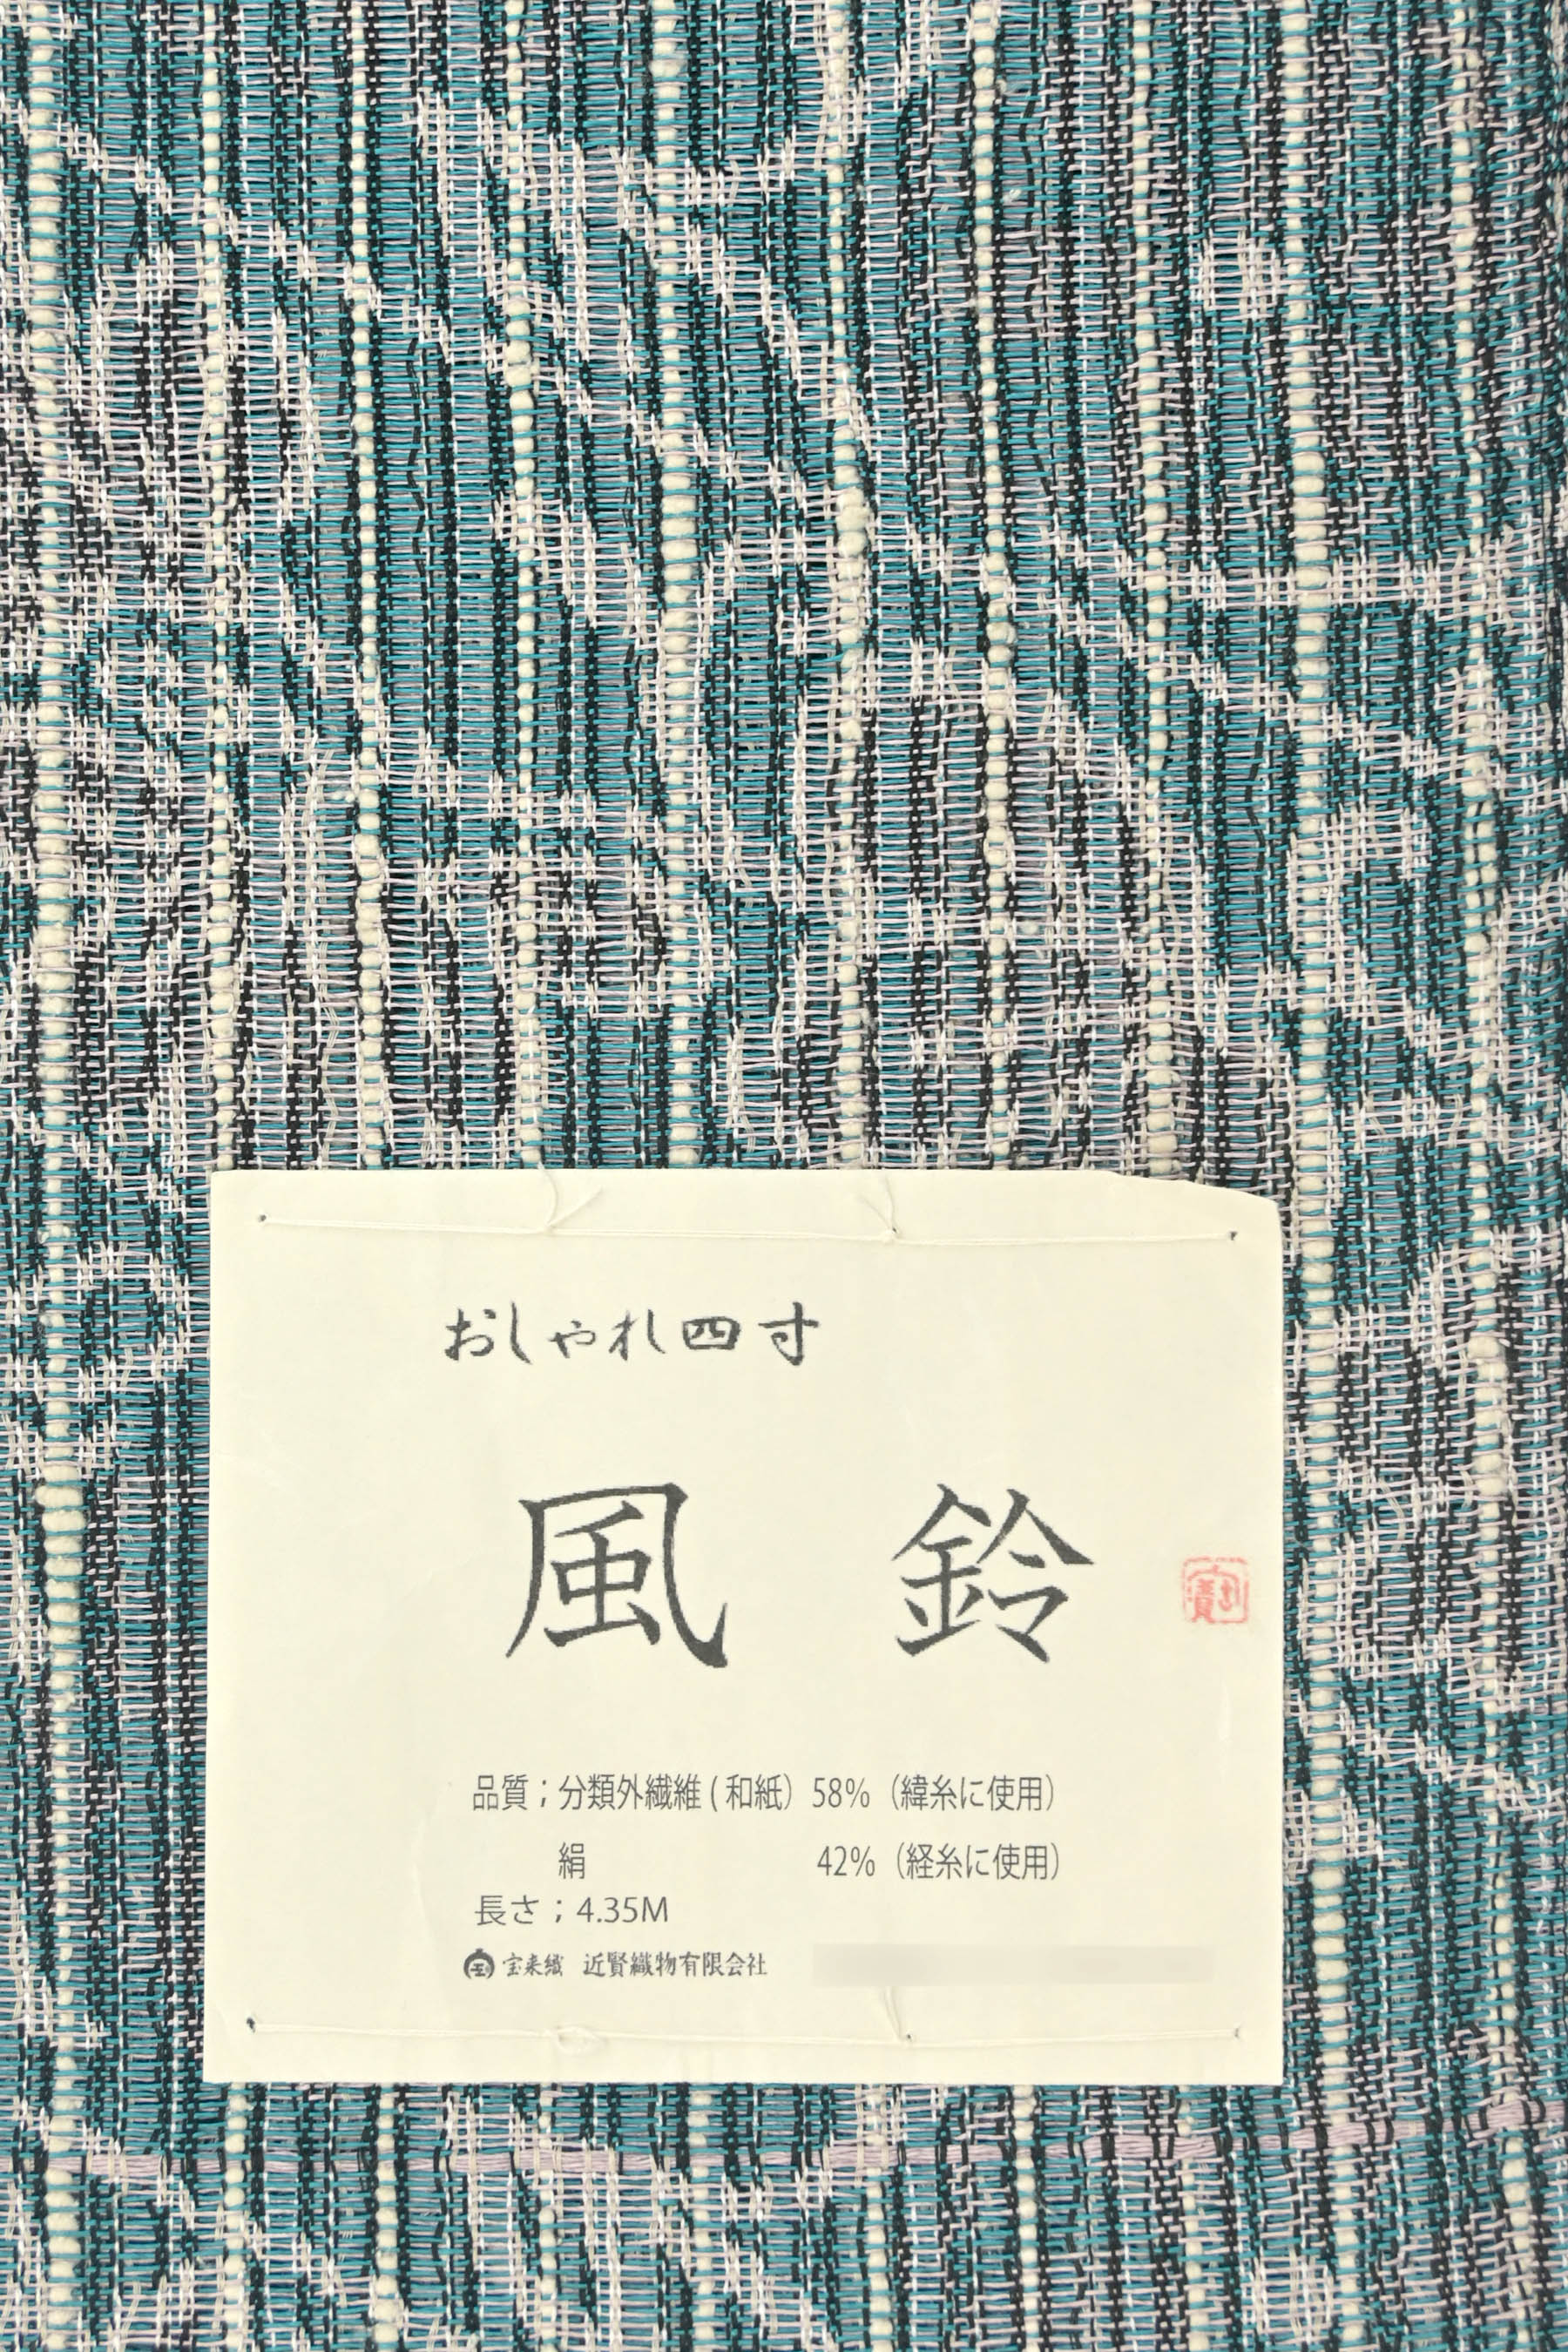 おしゃれ四寸
風鈴
品質；分類外繊維(和紙）58%（緯糸に使用）
絹 42%（経糸に使用）
長さ；4.35M
宝来織 近賢織物有限会社